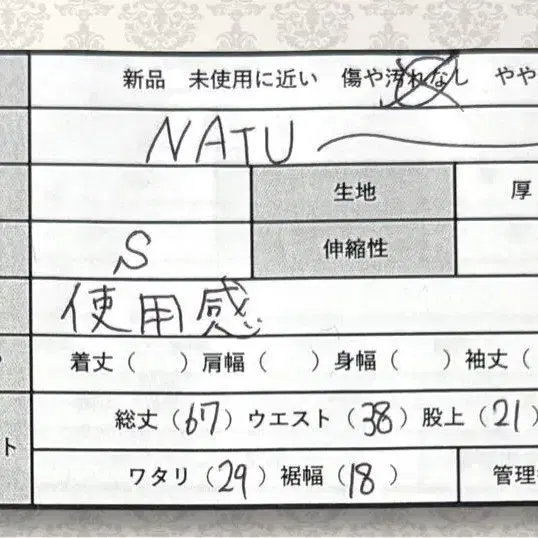 新品 未使用に近い 傷や汚れなし やや
NATU
生地 厚
S 伸縮性
使用感
着丈( )肩幅( )身幅( )袖丈(
総丈(67)ウエスト(38)股上(21)
ト
ワタリ(29)裾幅(18) 管理